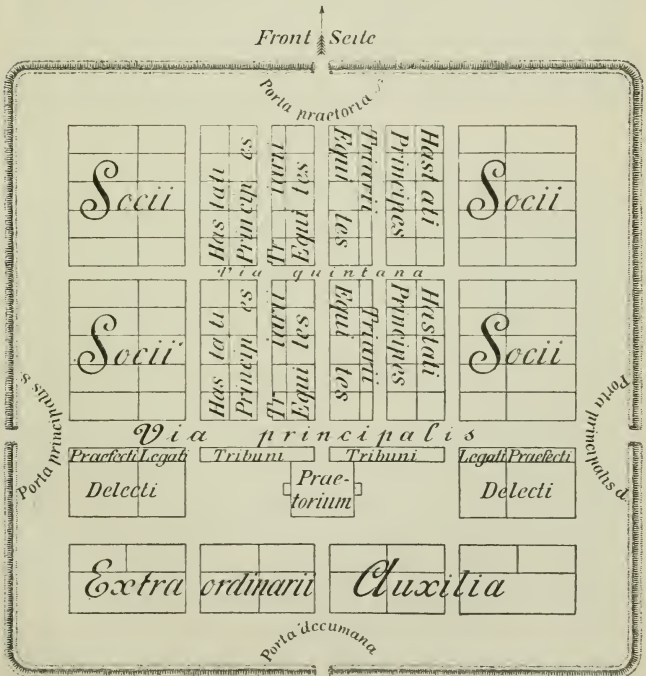 Front Seite
Porta praetoria
Socii
Hastati
Principes
Triarii
Equites
Equites
Triarii
Principes
Hastati
Socii
Via quintana
Socii
Hastati
Principes
Triarii
Equites
Equites
Triarii
Principes
Hastati
Socii
Porta principalis s.
Porta principalis d.
Via principalis
Praefecti Legati Tribuni Tribuni Legati Praefecti
Delecti
Prae-
torium
Delecti
Extra ordinarii Auxilia
Porta decumana